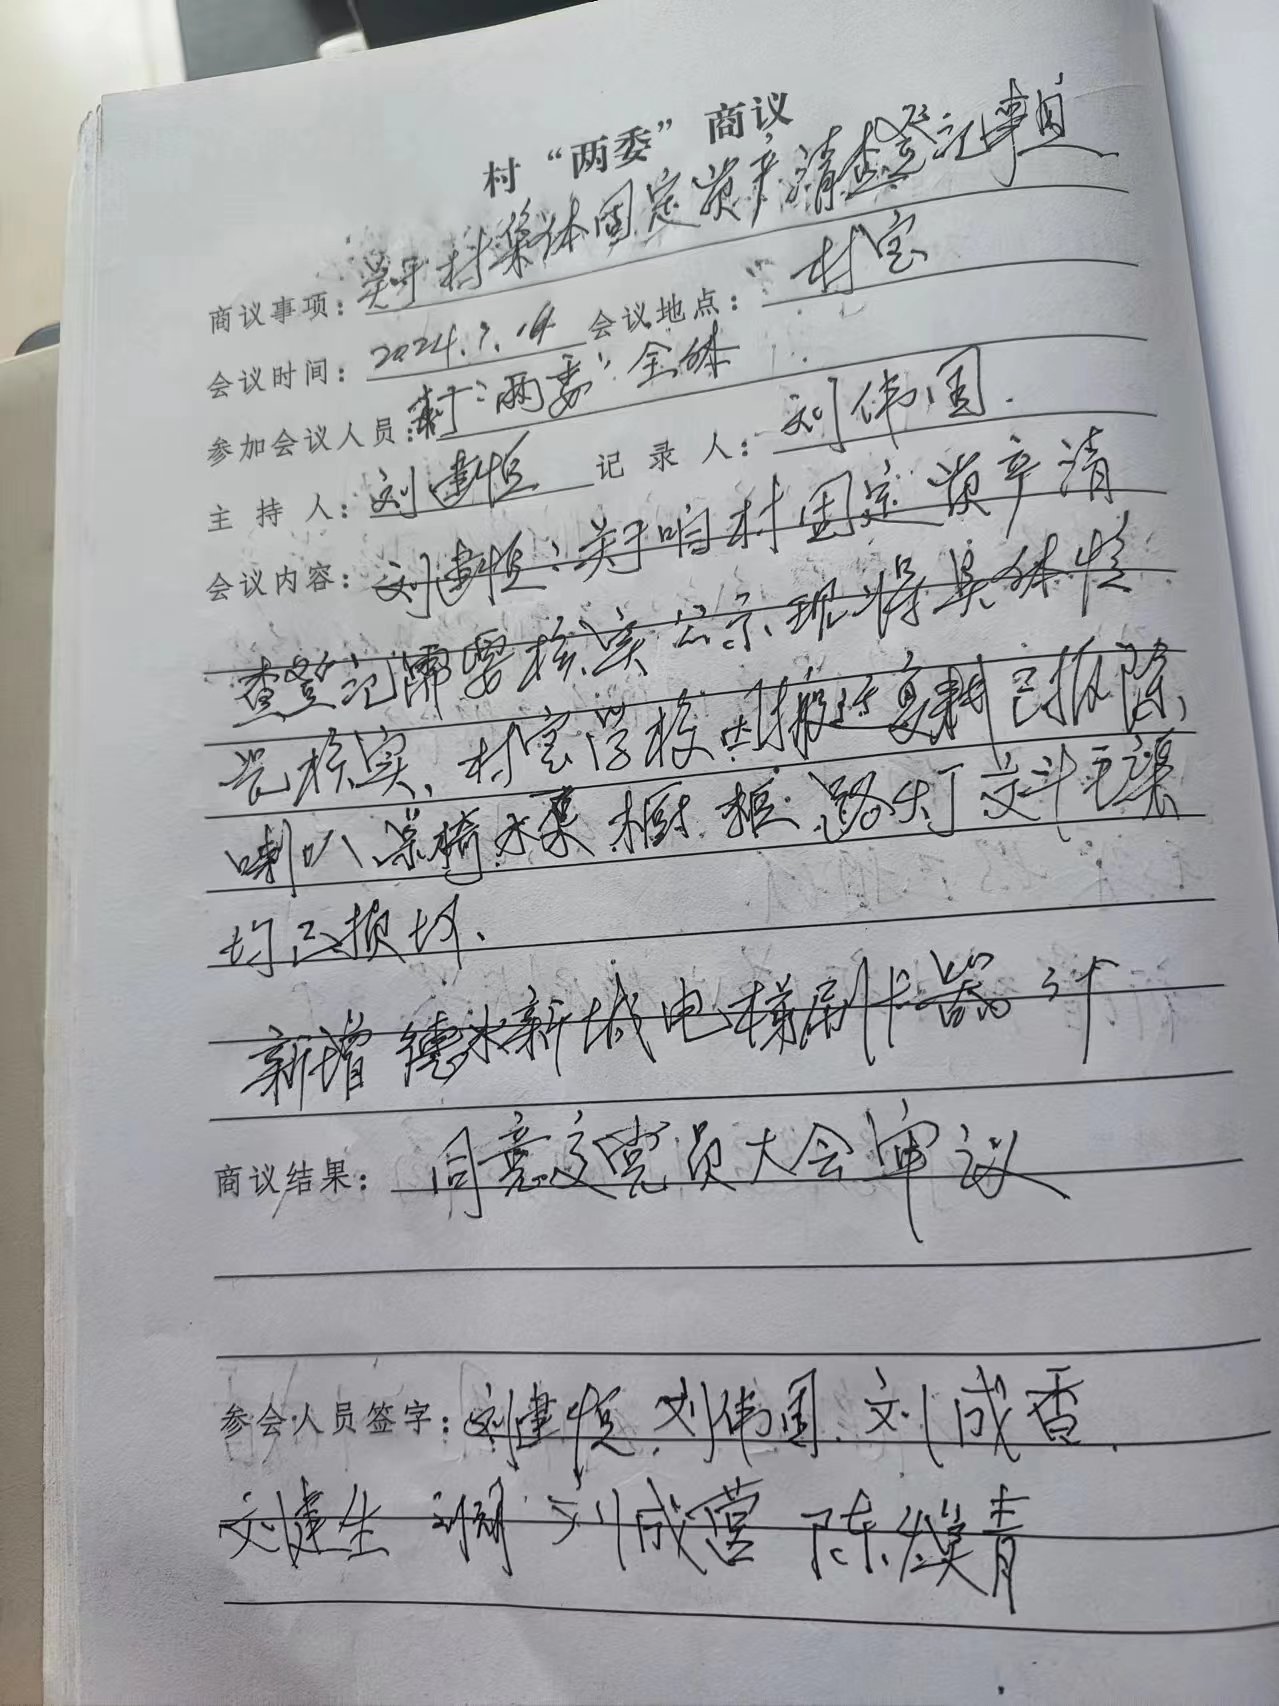 村“两委”商议
商议事项：关于村集体固定资产清查登记事宜
会议时间：2024.7.14 会议地点：村室
参加会议人员：村“两委”全体
主持人：刘建恒 记录人：刘伟国.
会议内容：刘建恒：关于咱村固定资产清
查登记需要核实公示、现将具体情
况核实、村室学校因搬迁复耕已拆除、
喇叭、桌椅、木 橱、柜、路灯
均已损坏、
新增德水新城电梯刷卡器 3个
商议结果：同意交党员大会审议
参会人员签字：刘建恒、刘伟国、刘成香.
刘建生 刘 刘成营 陈 青